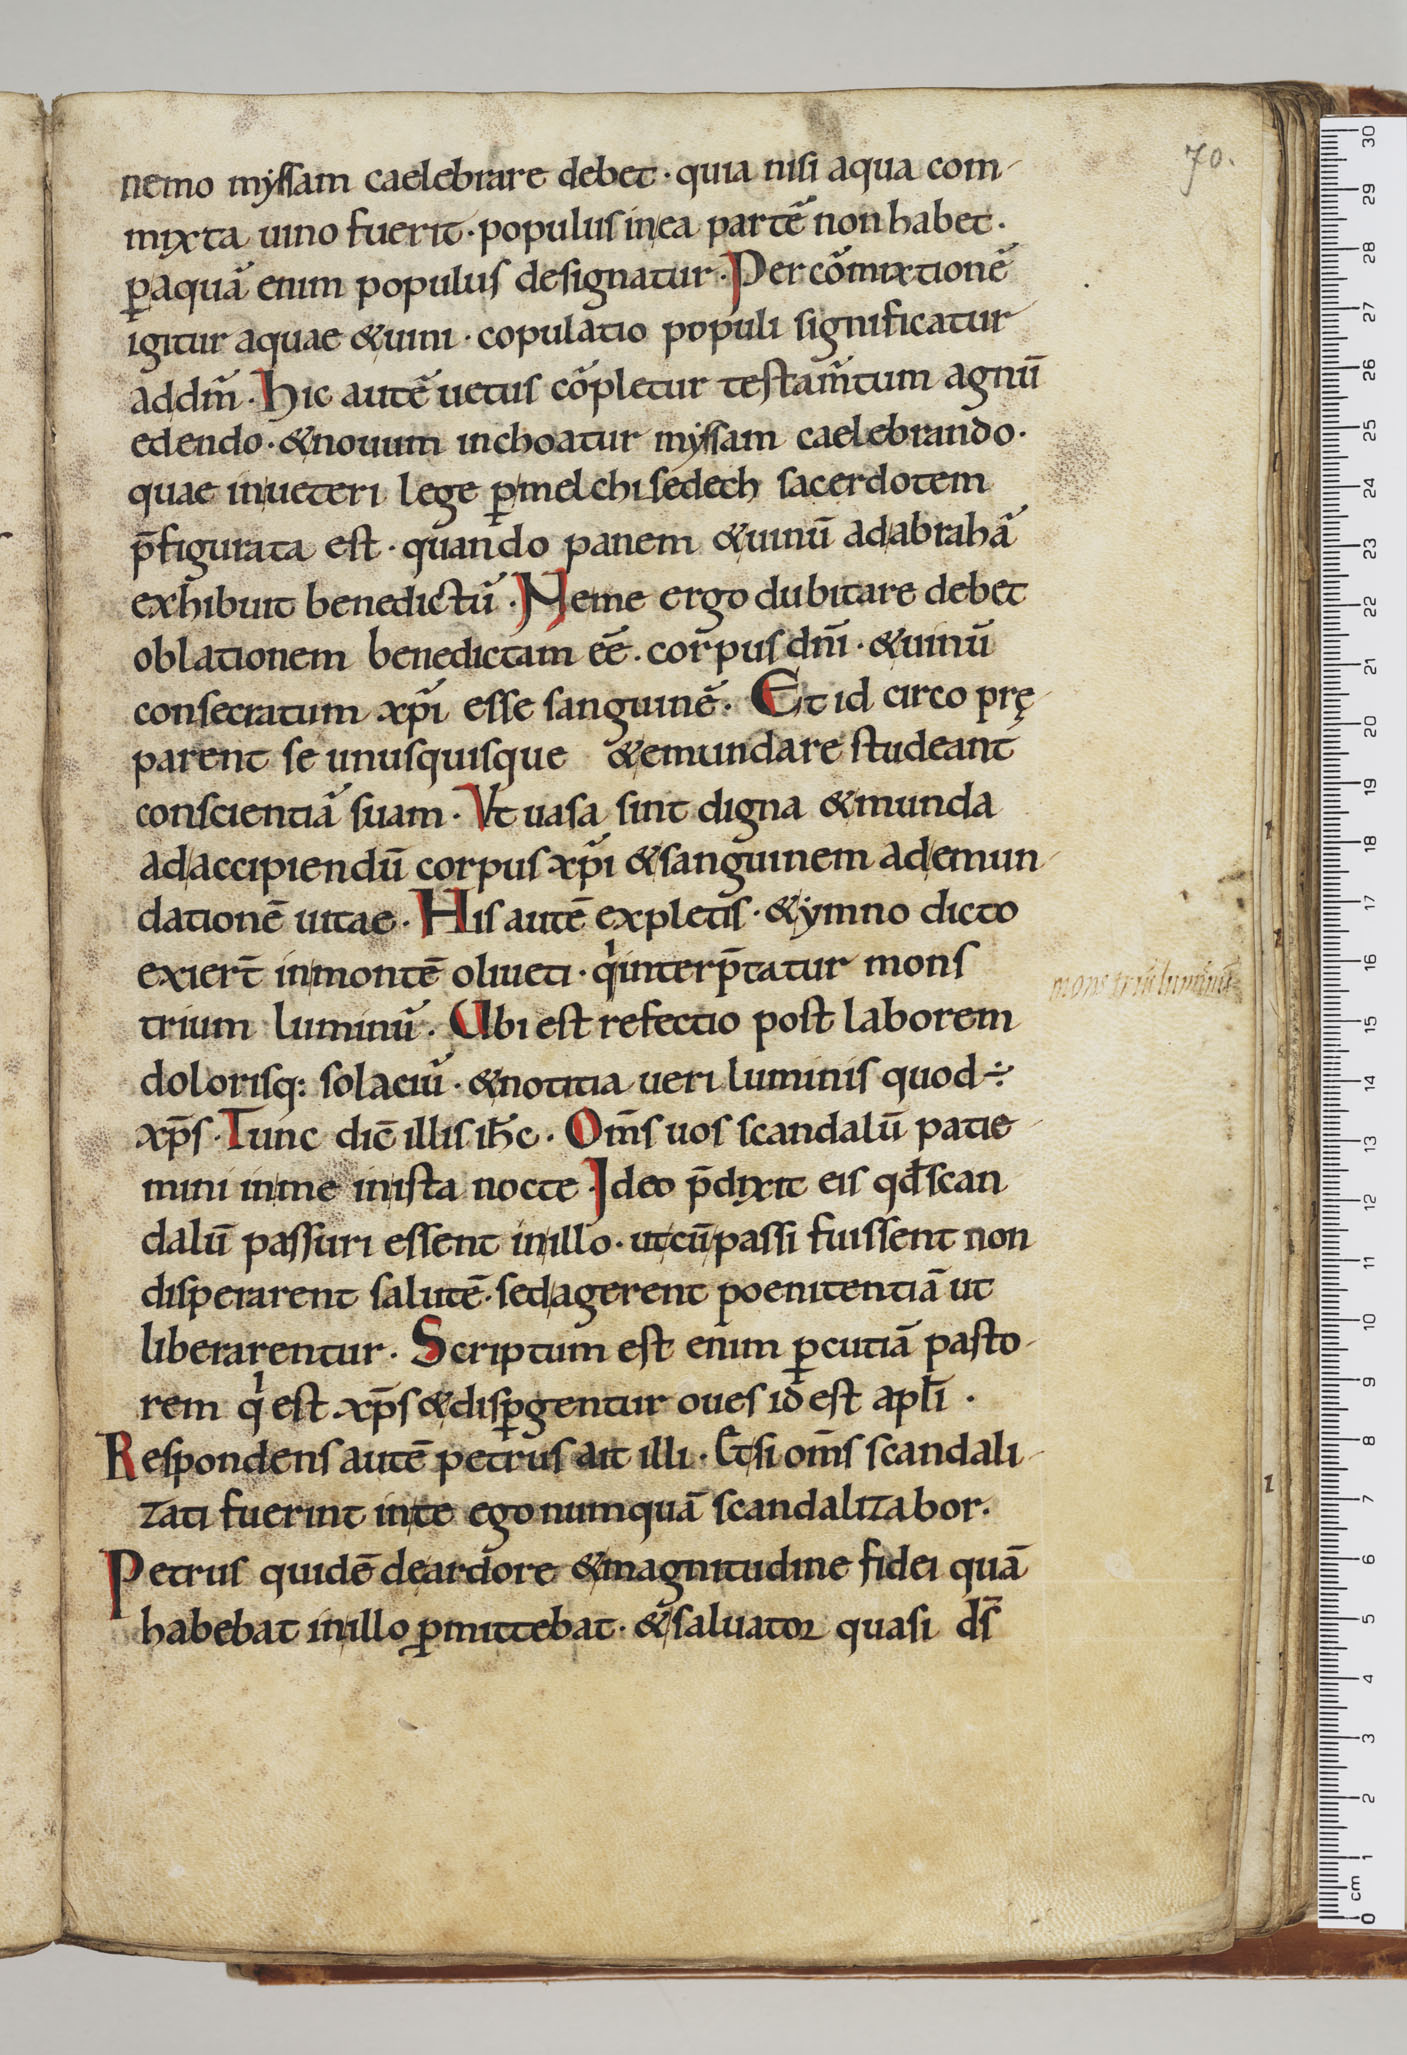 70.
nemo myssam caelebrare debet · quia nisi aqua com-
mixta uino fuerit · populus in ea partē non habet .
ꝑ aquā enim populus designatur · Per cōmixtionē
igitur aquae & uini · copulatio populi significatur
ad dm̄ · Hic autē uetus cōpletur testam̄tum agnū
edendo · & nouum inchoatur myssam caelebrando ·
quae in ueteri lege ꝑ melchisedech sacerdotem
p̄figurata est · quando panem & uinū ad abrahā
exhibuit benedictū · Neme ergo dubitare debet
oblationem benedictam eē . corpus dn̄i · & uinū
consecratum xp̄i esse sanguinē . Et id circo prę-
parent se unusquisque & emundare studeant
conscientiā suam · Vt uasa sint digna & munda
ad accipiendū corpus xp̄i & sanguinem ad emun-
dationē uitae · His autē expletis · & ymno dicto
exiert̄ in montē oliueti · qͥ interp̄tatur mons
mons triū luminū
trium luminū . Ubi est refectio post laborem
dolorisq: solaciū · & notitia ueri luminis quod ÷
xp̄s · Tunc dic̄ illis ih̄c . Om̄s uos scandalū patie-
mini in me in ista nocte · Ideo p̄dixit eis qd̄ scan
dalū passuri essent in illo · ut cū passi fuissent non
disperarent salutē · sed agerent poenitentiā ut
liberarentur . Scriptum est enim ꝑcutiā pasto-
rem qͥ est xp̄s & disꝑgentur oues id est apl̄i .
Respondens autē petrus ait illi . Etsi om̄s scandali-
zati fuerint in te ego numquā scandalizabor.
Petrus quidē de ardore & magnitudine fidei quā
habebat in illo ꝑmittebat · & saluator quasi ds̄